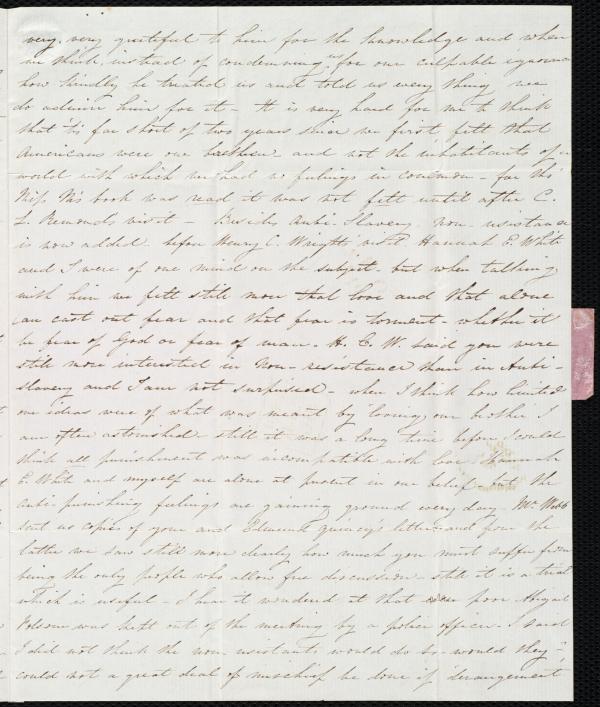 very, very grateful to him for the knowledge and when
we think, instead of condemning us for our culpable ignorance
how kindly he treated us and told us every thing we
do admire him for it - It is very hard for me to think
that tis far short of two years since we first felt that
Americans were our brethren - and not the inhabitants of a
world with which we had no feelings in common - for tho'
Miss M's book was read it was not felt until after C.
L. Remond's visit - Besides Anti-Slavery Non-resistance
is now added - before Henry C. Wright's visit Hannah E. White
and I were of one mind on the subject - but when talking
with him we felt still more that love and that alone
can cast out fear and that fear is torment - whether it
be fear of God or fear of man - H. C. W. said you were
still more interested in Non-resistance than in Anti-
slavery and I am not surprised - when I think how limited
our ideas were of what was meant by loving our brother I
am often astonished - still it was a long time before I could
think all punishment was incompatible with love Hannah
E. White and myself are alone at present in our belief - but the
anti-punishing feelings are gaining ground every day - Mr Webb
sent us copies of your and Edmund Quincy's letter and from the
latter we saw still more clearly how much you must suffer from
being the only people who allow free discussion - still it is a trial
which is useful - I hear it wondered at that poor Abigail
Folsom was kept out of the meeting by a police officer - I said
I did not think the non-resistants would do so - would they -
could not a great deal of mischief be done if derangement